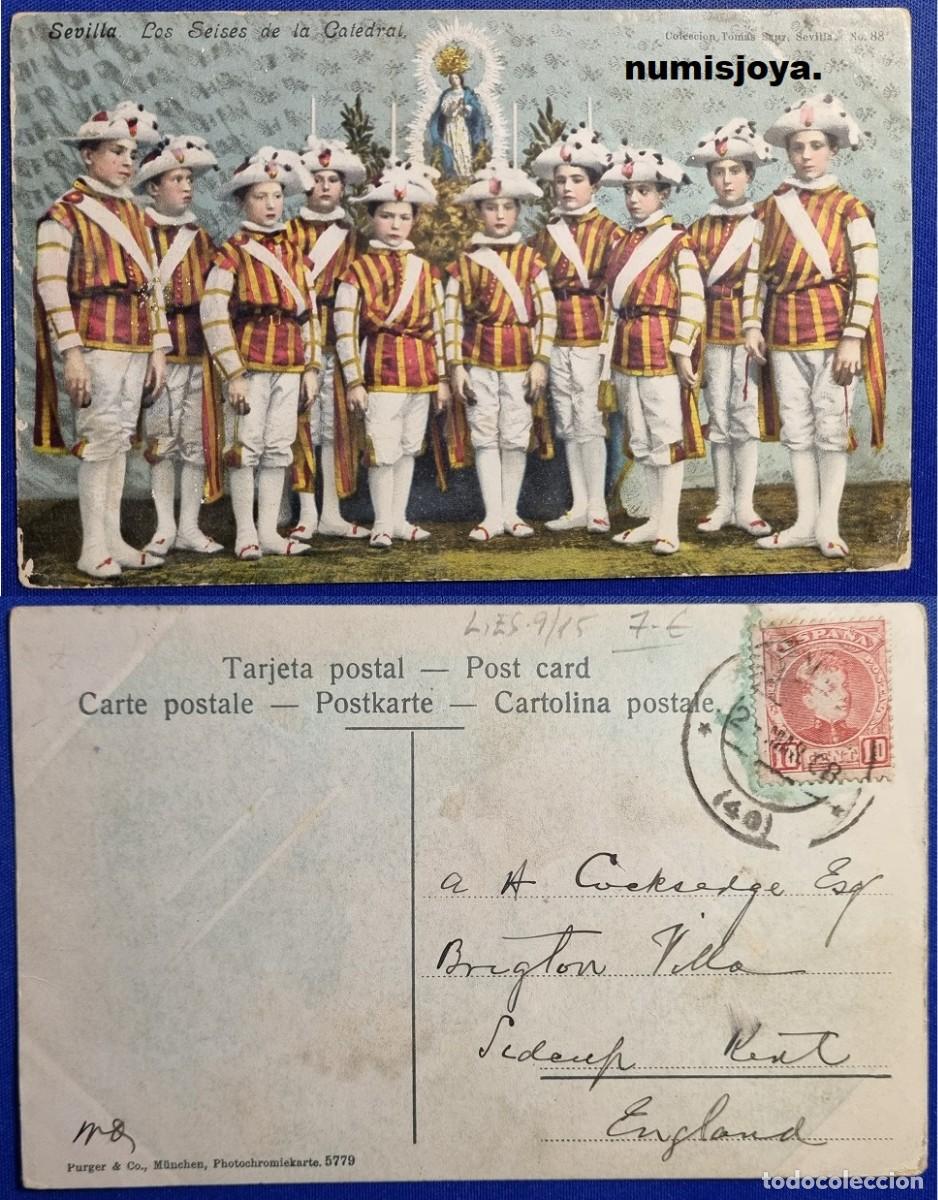 Sevilla. Los Seises de la Catedral.
Coleccion Tomás Sanz, Sevilla. No. 88
numisjoya.
L.ES-9/15 7-€
Tarjeta postal — Post card
Carte postale — Postkarte — Cartolina postale.
ESPAÑA
MAR 08
(40)
A H Cocksedge Esq
Brigton Villa
Sidcup Kent
England
Purger & Co., München, Photochromiekarte. 5779
todocoleccion